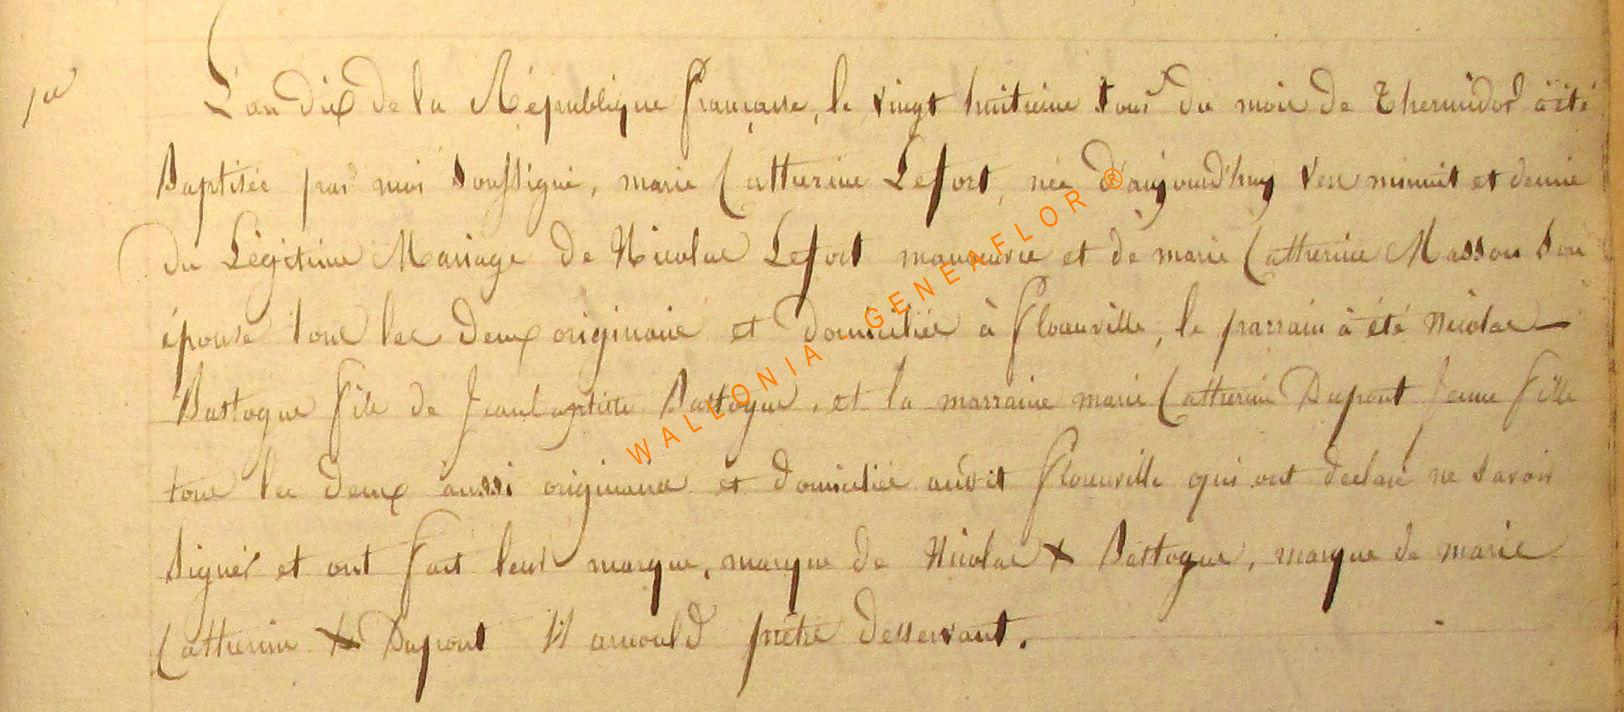 1er
L'an dix de la République française, le vingt huitième Jour du mois de Thermidor à été
Baptisée par moi Soussigné, marie Catherine Lefort, née d'aujourd'huy vers minuit et demie
du Légitime Mariage de Nicolas Lefort et de marie Catherine Masson Son
épouse tous les deux originaire et domiciliés à Florenville, le parrain à été Nicolas
Bastogne fils de Jeanbaptiste Bastogne, et la marraine marie Catherine Dupont Jeune fille
tous les deux aussi originaires et domiciliés audit Florenville qui ont declaré ne Savoir
Signer et ont fait leur marque, marque de Nicolas X Bastogne, marque de marie
Catherine X Dupont H arnould prêtre desservant.
WALLONIA GENEAFLOR ®